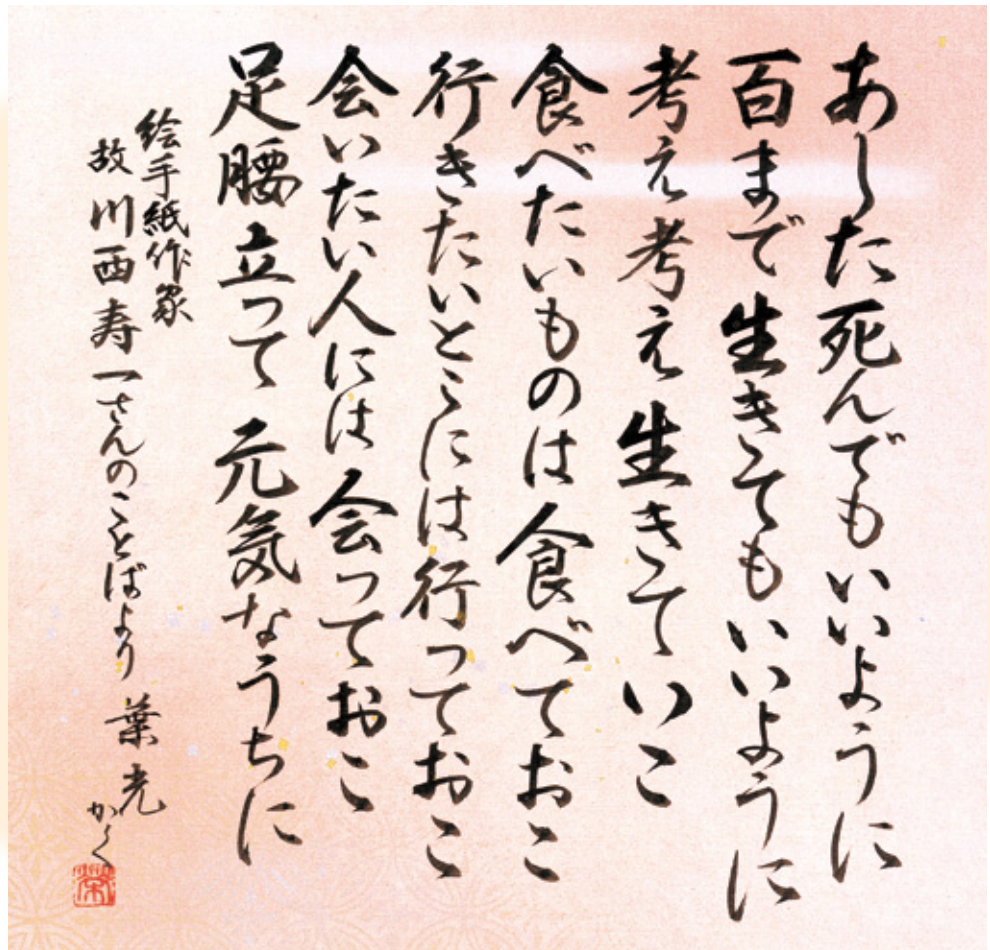 あした死んでもいいように
百まで生きてもいいように
考え考え生きていこ
食べたいものは食べておこ
行きたいとこには行っておこ
会いたい人には会っておこ
足腰立って元気なうちに
絵手紙作家
故川西寿一さんのことばより
葉光
かく